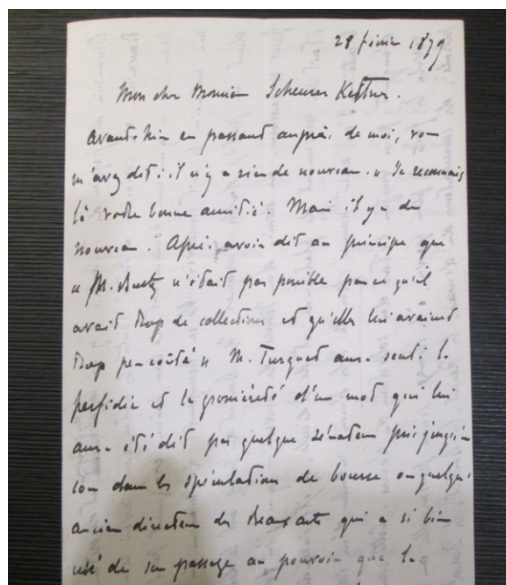 28 février 1879
Mon cher Monsieur Scheurer Kestner.
Avant-hier en passant auprès de moi, vous
m'avez dit : il n'y a rien de nouveau. » Je reconnais
là votre bonne amitié. Mais il y a du
nouveau. Après avoir dit au principe que
« M. Burty n'était pas possible parce qu'il
avait trop de collections et qu'elles lui avaient
trop peu coûté » M. Turquet aura senti la
perfidie et la grossièreté d'un mot qui lui
aura été dit par quelque sénateur
dans les spéculations de bourse ou quelque
ancien directeur des Beaux arts qui a si bien
usé de son passage au pouvoir que la